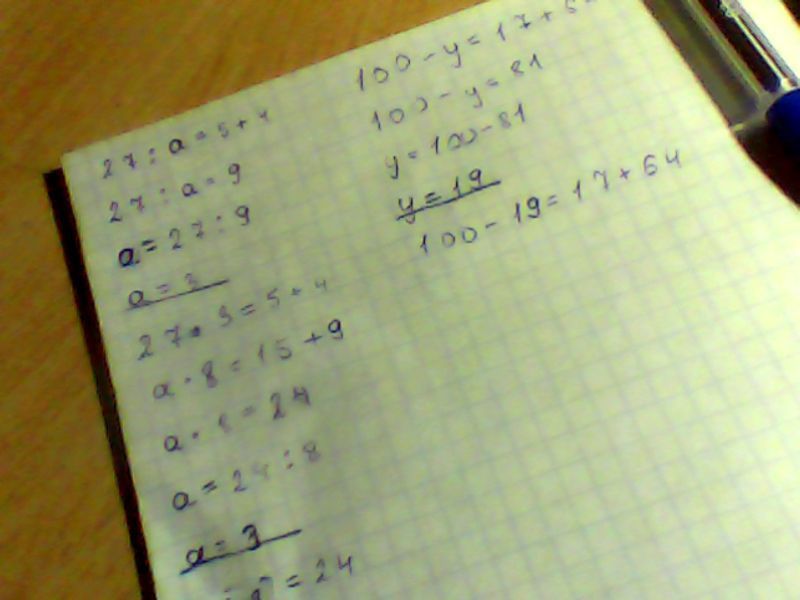 27 : a = 5 + 4
27 : a = 9
a = 27 : 9
a = 3
27 : 3 = 5 + 4
a · 8 = 15 + 9
a · 8 = 24
a = 24 : 8
a = 3
= 24
100 - y = 17 + 64
100 - y = 81
y = 100 - 81
y = 19
100 - 19 = 17 + 64